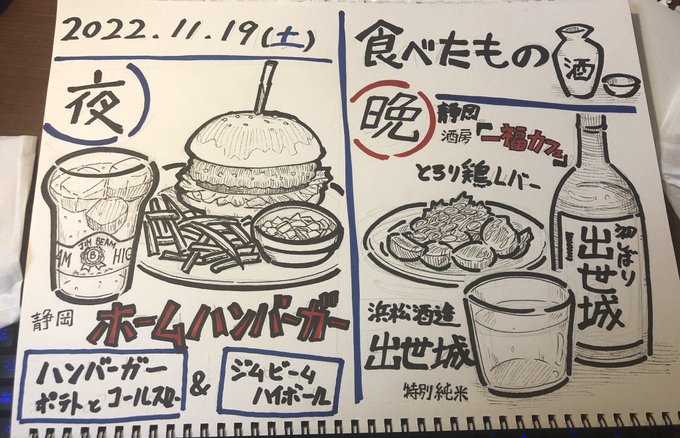 2022.11.19(土)
夜
JIM BEAM
B
AM
HIG
静岡
ホームハンバーガー
ハンバーガー
ポテトとコールスロー
&
ジムビーム
ハイボール
食べたもの
酒
晩
静岡
酒房「一福カフェ」
とろり鶏レバー
初しぼり
出世城
浜松酒造
出世城
特別純米